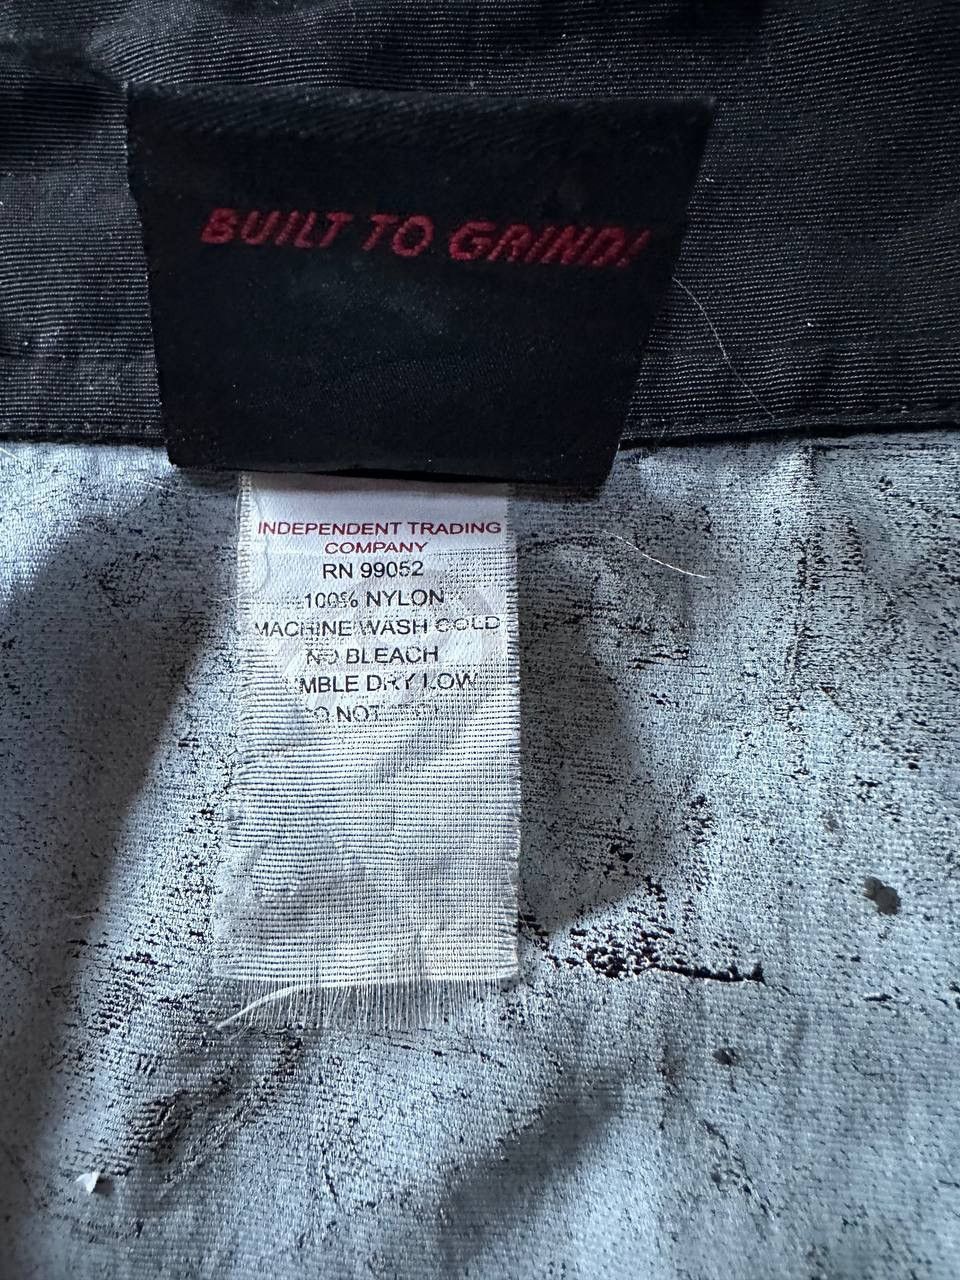 BUILT TO GRIND!
INDEPENDENT TRADING
COMPANY
RN 99052
100% NYLON
MACHINE WASH COLD
NO BLEACH
MBLE DRY LOW
DO NOT